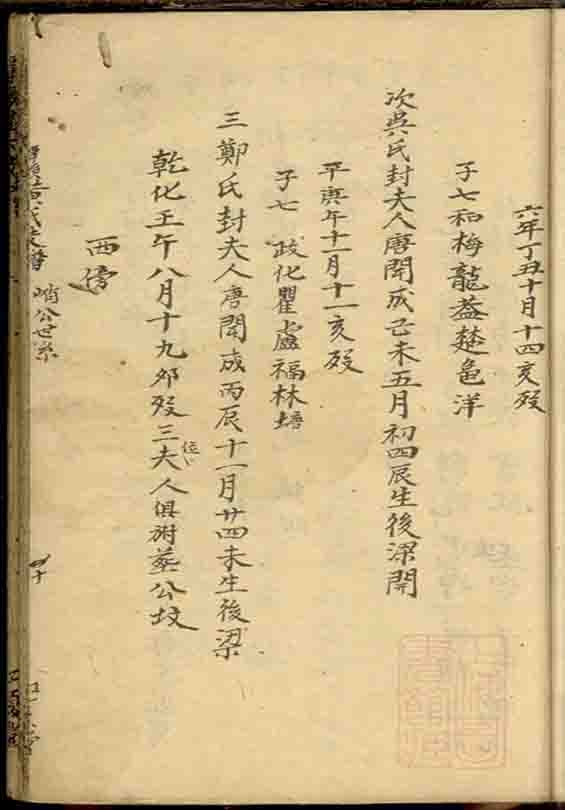 六年丁丑十月十四亥殁
子七和梅龍益楚邑洋
次吳氏封夫人唐開成己未五月初四辰生後梁開
平庚午十一月十一亥殁
子七 政化瞿盧福林塘
三鄭氏封夫人唐開成丙辰十一月廿四未生後梁
乾化壬午八月十九卯殁三位夫人俱祔塟公坟
西傍
峭公世系
四十